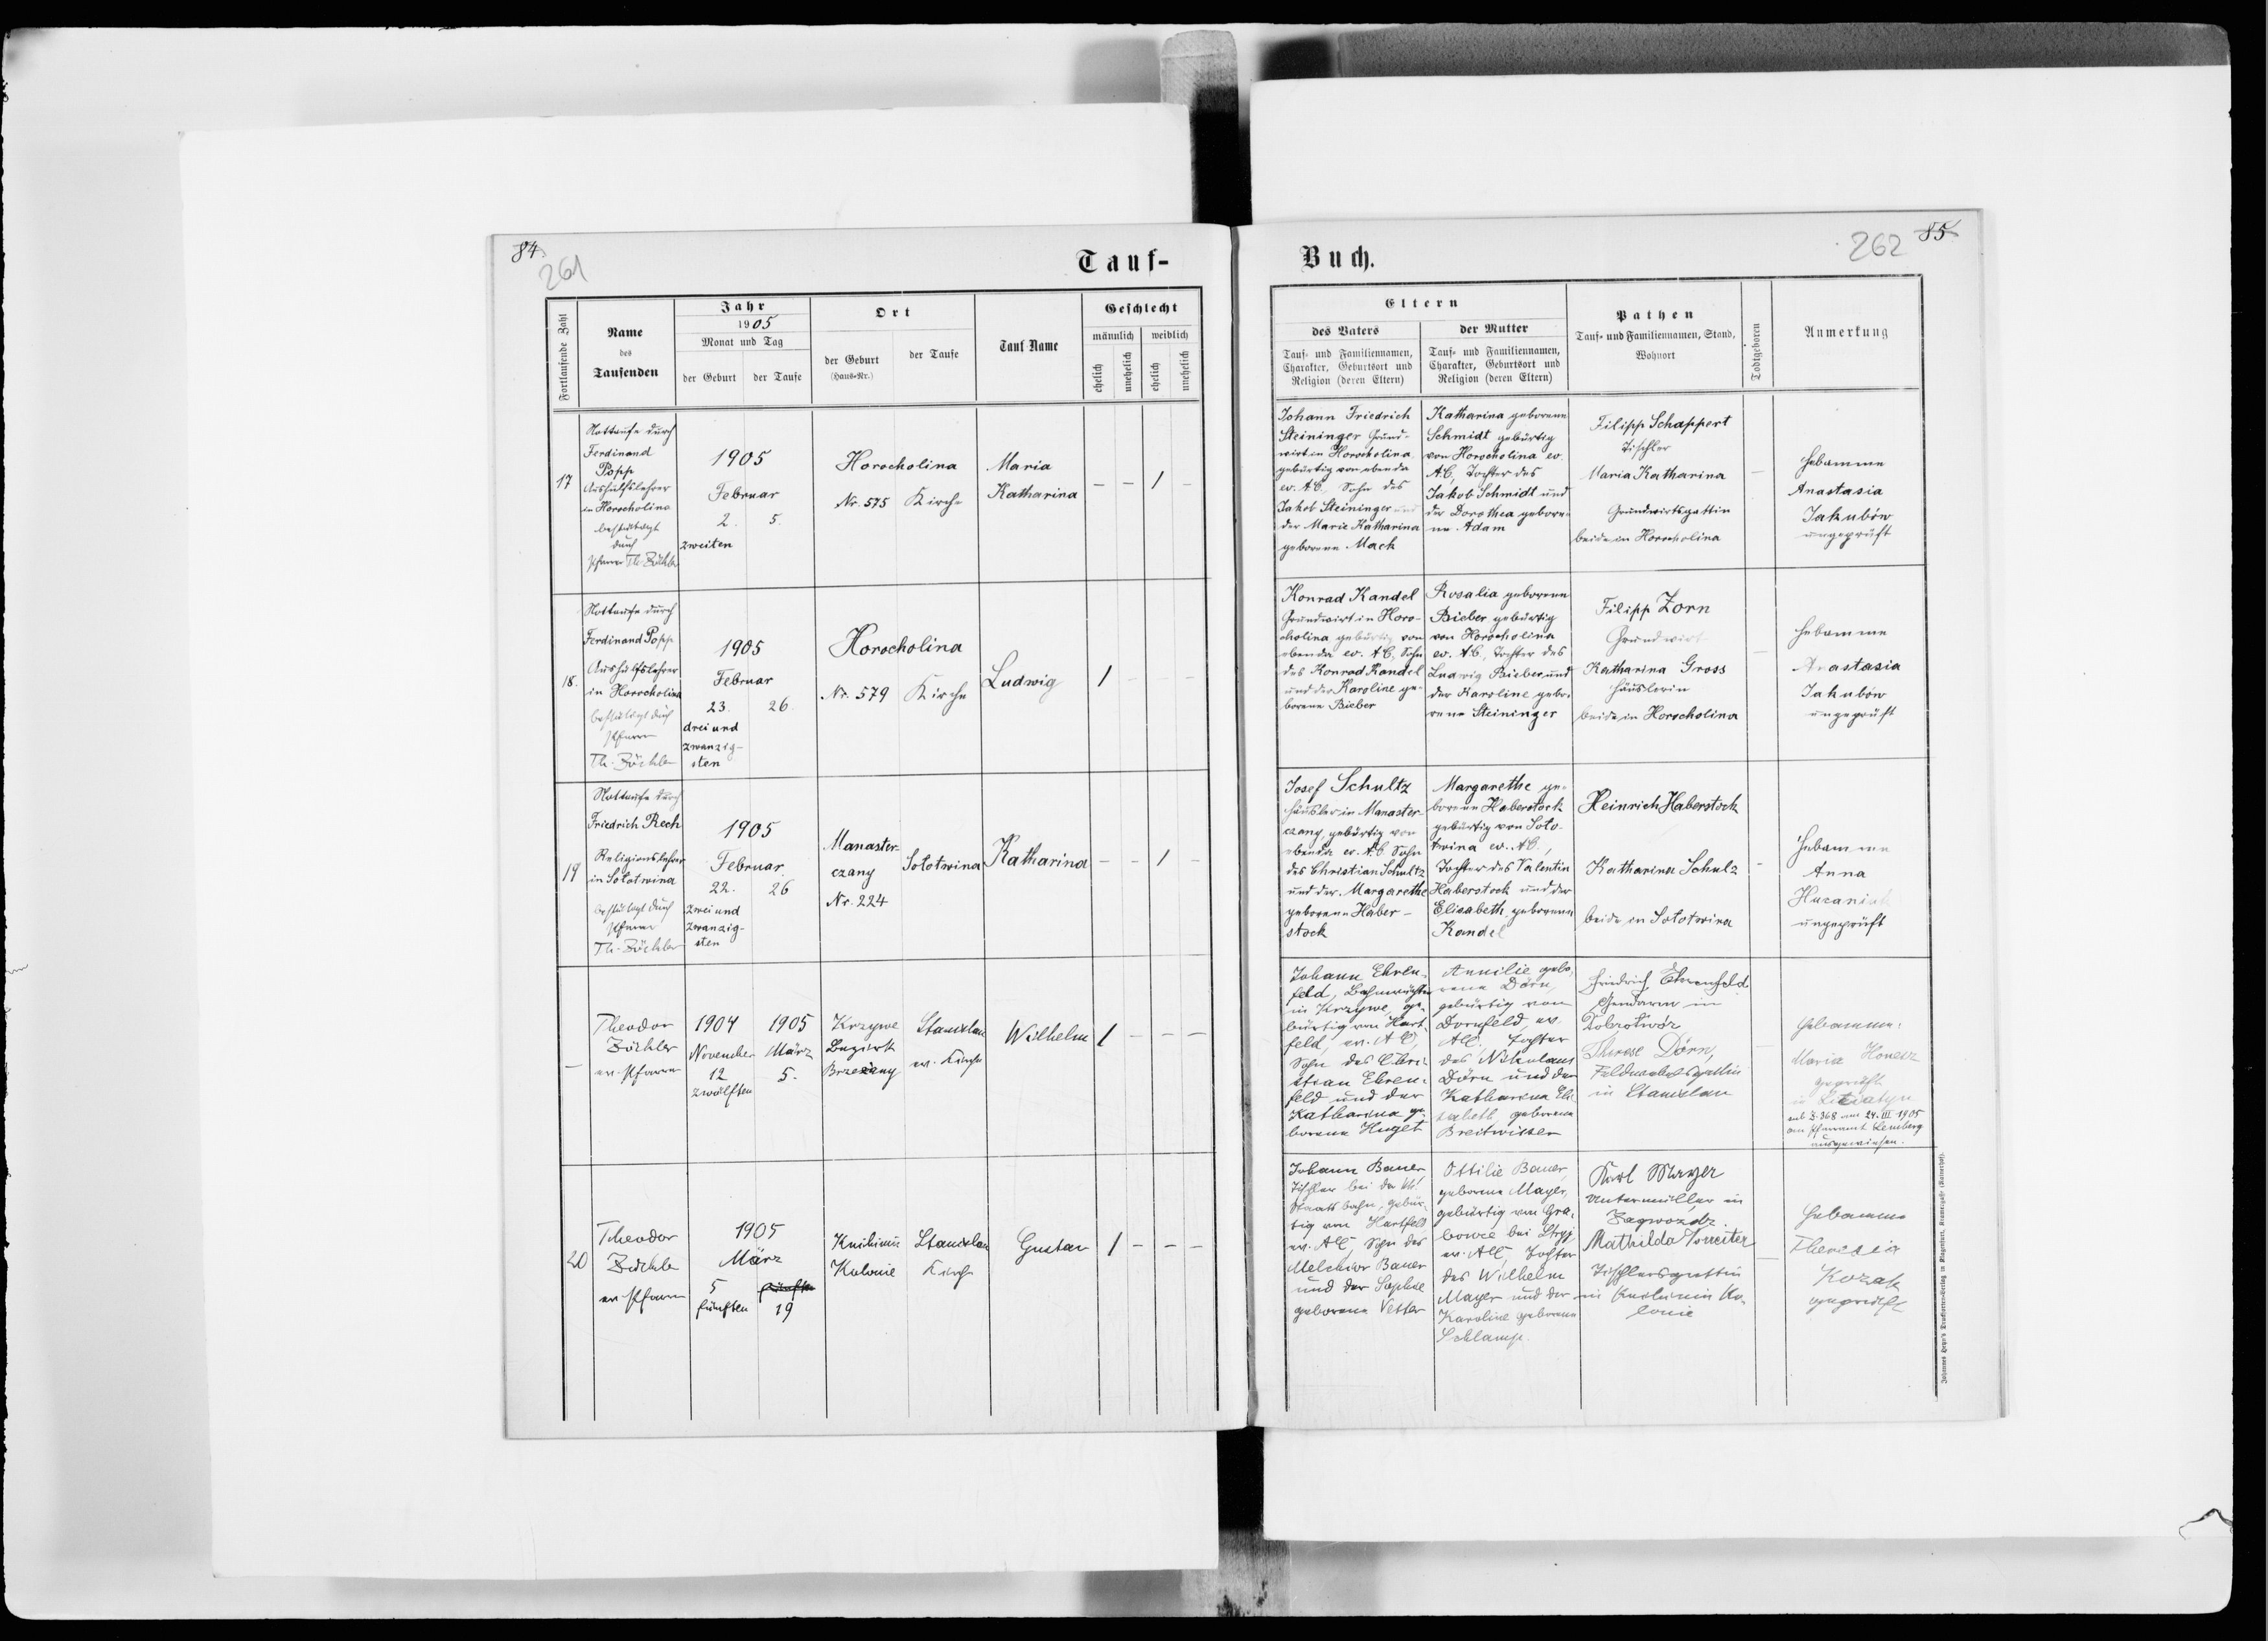 84.
261
Tauf-
Fortlaufende Zahl
Name
des
Taufenden
Jahr
1905
Monat und Tag
der Geburt
der Taufe
Ort
der Geburt
(Haus-Nr.)
der Taufe
Tauf-Name
Geschlecht
männlich
weiblich
ehelich
unehelich
ehelich
unehelich
17
Nottaufe durch
Ferdinand
Popp
Aushülfslehrer
in Horocholina
bestätigt
durch
Pfarrer Th. Zöckler
1905
Februar
2. 5.
zweiten
Horocholina
Nr. 575 Kirche
Maria
Katharina
– – 1 –
18.
Nottaufe durch
Ferdinand Popp
Aushülfslehrer
in Horocholina
bestätigt durch
Pfarrer
Th. Zöckler
1905
Februar
23. 26.
drei und
zwanzig-
sten
Horocholina
Nr. 579 Kirche
Ludwig
1 – – –
19
Nottaufe durch
Friedrich Rech
Religionslehrer
in Sołotwina
bestätigt durch
Pfarrer
Th. Zöckler
1905
Februar
22. 26
zwei und
zwanzig-
sten
Manaster-
czany
Nr. 224
Sołotwina
Katharina
– – 1 –
–
Theodor
Zöckler
ev. Pfarrer
1904 1905
November März
12 5.
zwölften
Krzywe
Bezirk
Brzeżany
Stanislau
ev. Kirche
Wilhelm
1 – – –
20
Theodor
Zöckler
ev. Pfarrer
1905
März
5 fünften
fünften 19
Knihinin
Kolonie
Stanislau
Kirche
Gustav
1 – – –
Buch.
262
85
Eltern
des Vaters
Tauf- und Familiennamen,
Charakter, Geburtsort und
Religion (deren Eltern)
der Mutter
Tauf- und Familiennamen,
Charakter, Geburtsort und
Religion (deren Eltern)
Pathen
Tauf- und Familiennamen, Stand,
Wohnort
Todtgeboren
Anmerkung
Johann Friedrich
Steininger Grund-
wirt in Horocholina
gebürtig von ebenda
ev. A.C., Sohn des
Jakob Steininger und
der Marie Katharina
geborene Mach
Katharina geborene
Schmidt gebürtig
von Horocholina ev.
A.C., Tochter des
Jakob Schmidt und
der Dorothea gebore-
ne Adam
Filipp Schappert
Tischler
Maria Katharina
Grundwirtsgattin
beide in Horocholina
–
Hebamme
Anastasia
Jakubów
ungeprüft
Konrad Kandel
Grundwirt in Horo-
cholina gebürtig von
ebenda ev. A.C., Sohn
des Konrad Kandel
und der Karoline ge-
borene Bieber
Rosalia geborene
Bieber gebürtig
von Horocholina
ev. A.C., Tochter des
Ludwig Bieber und
der Karoline gebo-
rene Steininger
Filipp Zorn
Grundwirt
Katharina Gross
Häuslerin
beide in Horocholina
–
Hebamme
Anastasia
Jakubów
ungeprüft
Josef Schultz
Häusler in Manaster-
czany, gebürtig von
ebenda ev. A.C. Sohn
des Christian Schultz
und der Margarethe
geborene Haber-
stock
Margarethe ge-
borene Haberstock
gebürtig von Soło-
twina ev. A.C.,
Tochter des Valentin
Haberstock und der
Elisabeth geborene
Kandel
Heinrich Haberstock
Katharina Schulz
beide in Sołotwina
–
Hebamme
Anna
ungeprüft
Johann Ehren-
feld, Bahnwächter
in Krzywe, ge-
bürtig von Hart-
feld, ev. A.C,
Sohn des Chri-
stian Ehren-
feld und der
Katharina ge-
borene Huget
gebo-
rene Dörn,
gebürtig von
Dornfeld, ev.
A.C. Tochter
des Nikolaus
Dörn und der
Katharina Eli-
sabeth geborene
Breitwieser
Friedrich Ehrenfeld
Gendarm in
Dobrotwór
Therese Dörn,
Feldwebelsgattin
in Stanislau
–
Hebamme:
Maria
geprüft
in
sub Z. 368 am 24. III. 1905
an Pfarramt Lemberg
ausgewiesen.
Johann Bauer
Tischler bei der kk
Staatsbahn, gebür-
tig von Hartfeld
ev. A.C, Sohn des
Melchior Bauer
und der Sophie
geborene Vetter
Ottilie Bauer,
geborene Mayer,
gebürtig von Gra-
bowce bei Stryj
ev. A.C, Tochter
des Wilhelm
Mayer und der
Karoline geborene
Schlamp.
Karl Mayer
Untermüller in
Zagwozdz.
Mathilda
Tischlersgattin
in Knihinin Ko-
lonie
–
Hebamme
Theresia
Kozak
geprüft
Johannes Heyn's Drucksorten-Verlag in Klagenfurt, Kramergasse (Rainerhof).